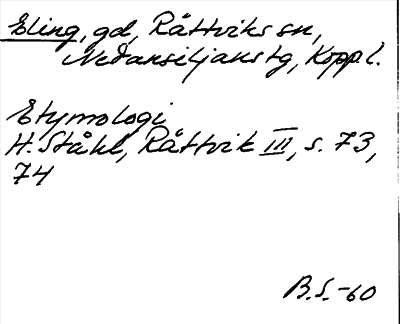 Eling, gd, Rättviks sn,
Nedansiljans tg, Kopp.l.
Etymologi
H. Ståhl, Rättvik III, s. 73,
74
B.S. -60